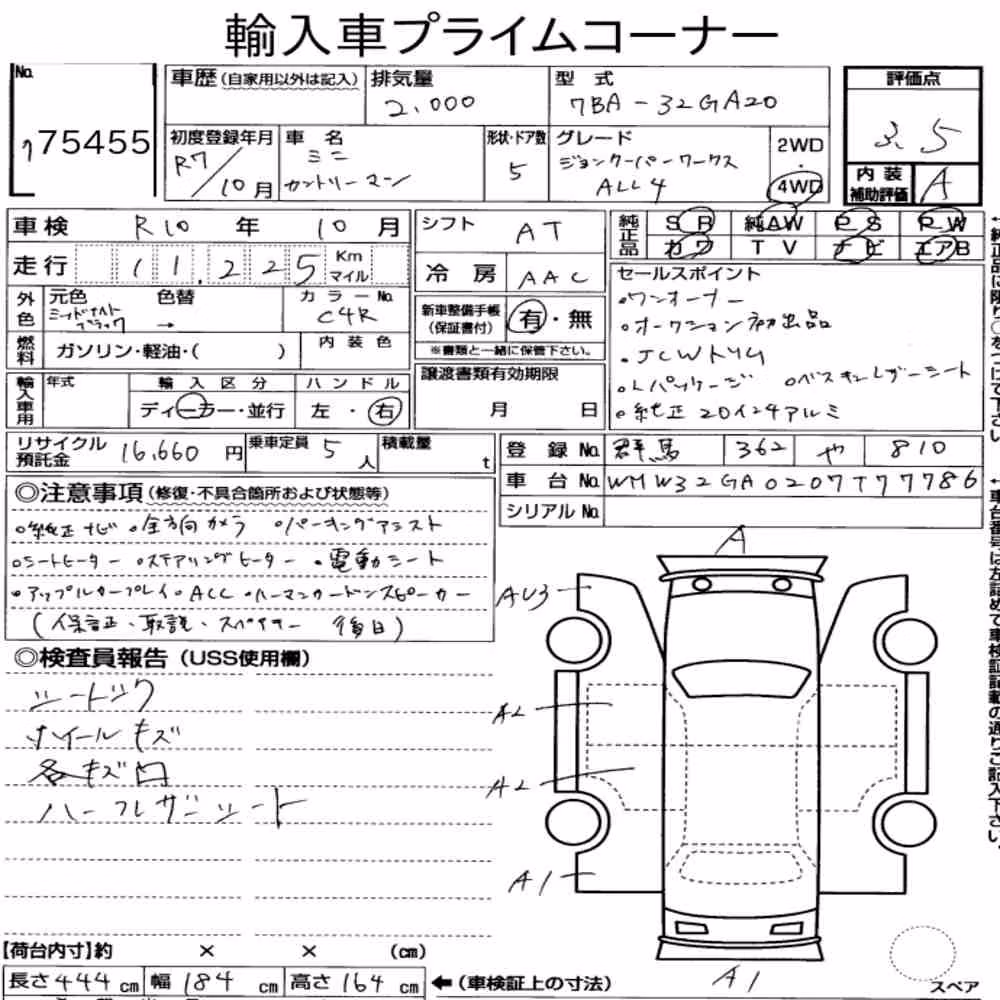 輸入車プライムコーナー
No. 75455
車歴(自家用以外は記入)
排気量 2.000
型式 7BA-32GA20
評価点 3.5
初度登録年月 R7/10月
車名 ミニ カントリーマン
形状・ドア数 5
グレード ジョンクーパーワークス ALL4
2WD・4WD
内装補助評価 A
車検 R10年 10月
シフト AT
純正品 SR 純AW PS PW
カワ TV ナビ エアB
走行 11,225 Km マイル
冷房 AAC
外色 元色 ミッドナイトブラック 色替 →
カラーNo. C4R
新車整備手帳(保証書付) 有・無
※書類と一緒に保管下さい。
燃料 ガソリン・軽油・( )
内装色
譲渡書類有効期限 月 日
セールスポイント
・ワンオーナー
・オークション初出品
・JCWトリム
・Lパッケージ ・ベスキンレザーシート
・純正20インチアルミ
輸入車用 年式
輸入区分 ディーラー・並行
ハンドル 左・右
リサイクル預託金 16,660円
乗車定員 5人
積載量 t
登録No. 群馬 362 や 810
車台No. WMW32GA0207T77786
シリアルNo.
◎注意事項(修復・不具合箇所および状態等)
・純正ナビ ・全方向カメラ ・パーキングアシスト
・シートヒーター ・ステアリングヒーター ・電動シート
・アップルカープレイ ・ACC ・ハーマンカードンスピーカー
(保証書・取説・スペアキー 後日)
◎検査員報告(USS使用欄)
シートシワ
ホイールキズ
各キズ凹
ハーフレザーシート
A
AU3
A2
A2
A1
A1
【荷台内寸】約 × × (cm)
長さ444cm 幅184cm 高さ164cm ←(車検証上の寸法)
スペア
↑純正品に限り○をつけて下さい。
↑車台番号は左詰めで車検証記載の通りご記入下さい。